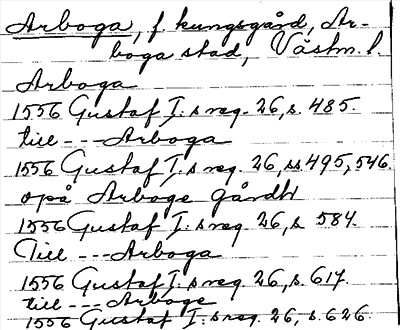 Arboga, f. kungsgård, Ar-
boga stad, Västm. l.
Arboga
1556 Gustaf I:s reg. 26, s. 485.
till --- Arboga
1556 Gustaf I:s reg. 26, ss 495, 546.
opå Arboge Gårdh
1556 Gustaf I:s reg. 26, s 584.
Till --- Arboga
1556 Gustaf I:s reg. 26, s. 617.
till --- Arboge
1556 Gustaf I:s reg. 26, s. 626.